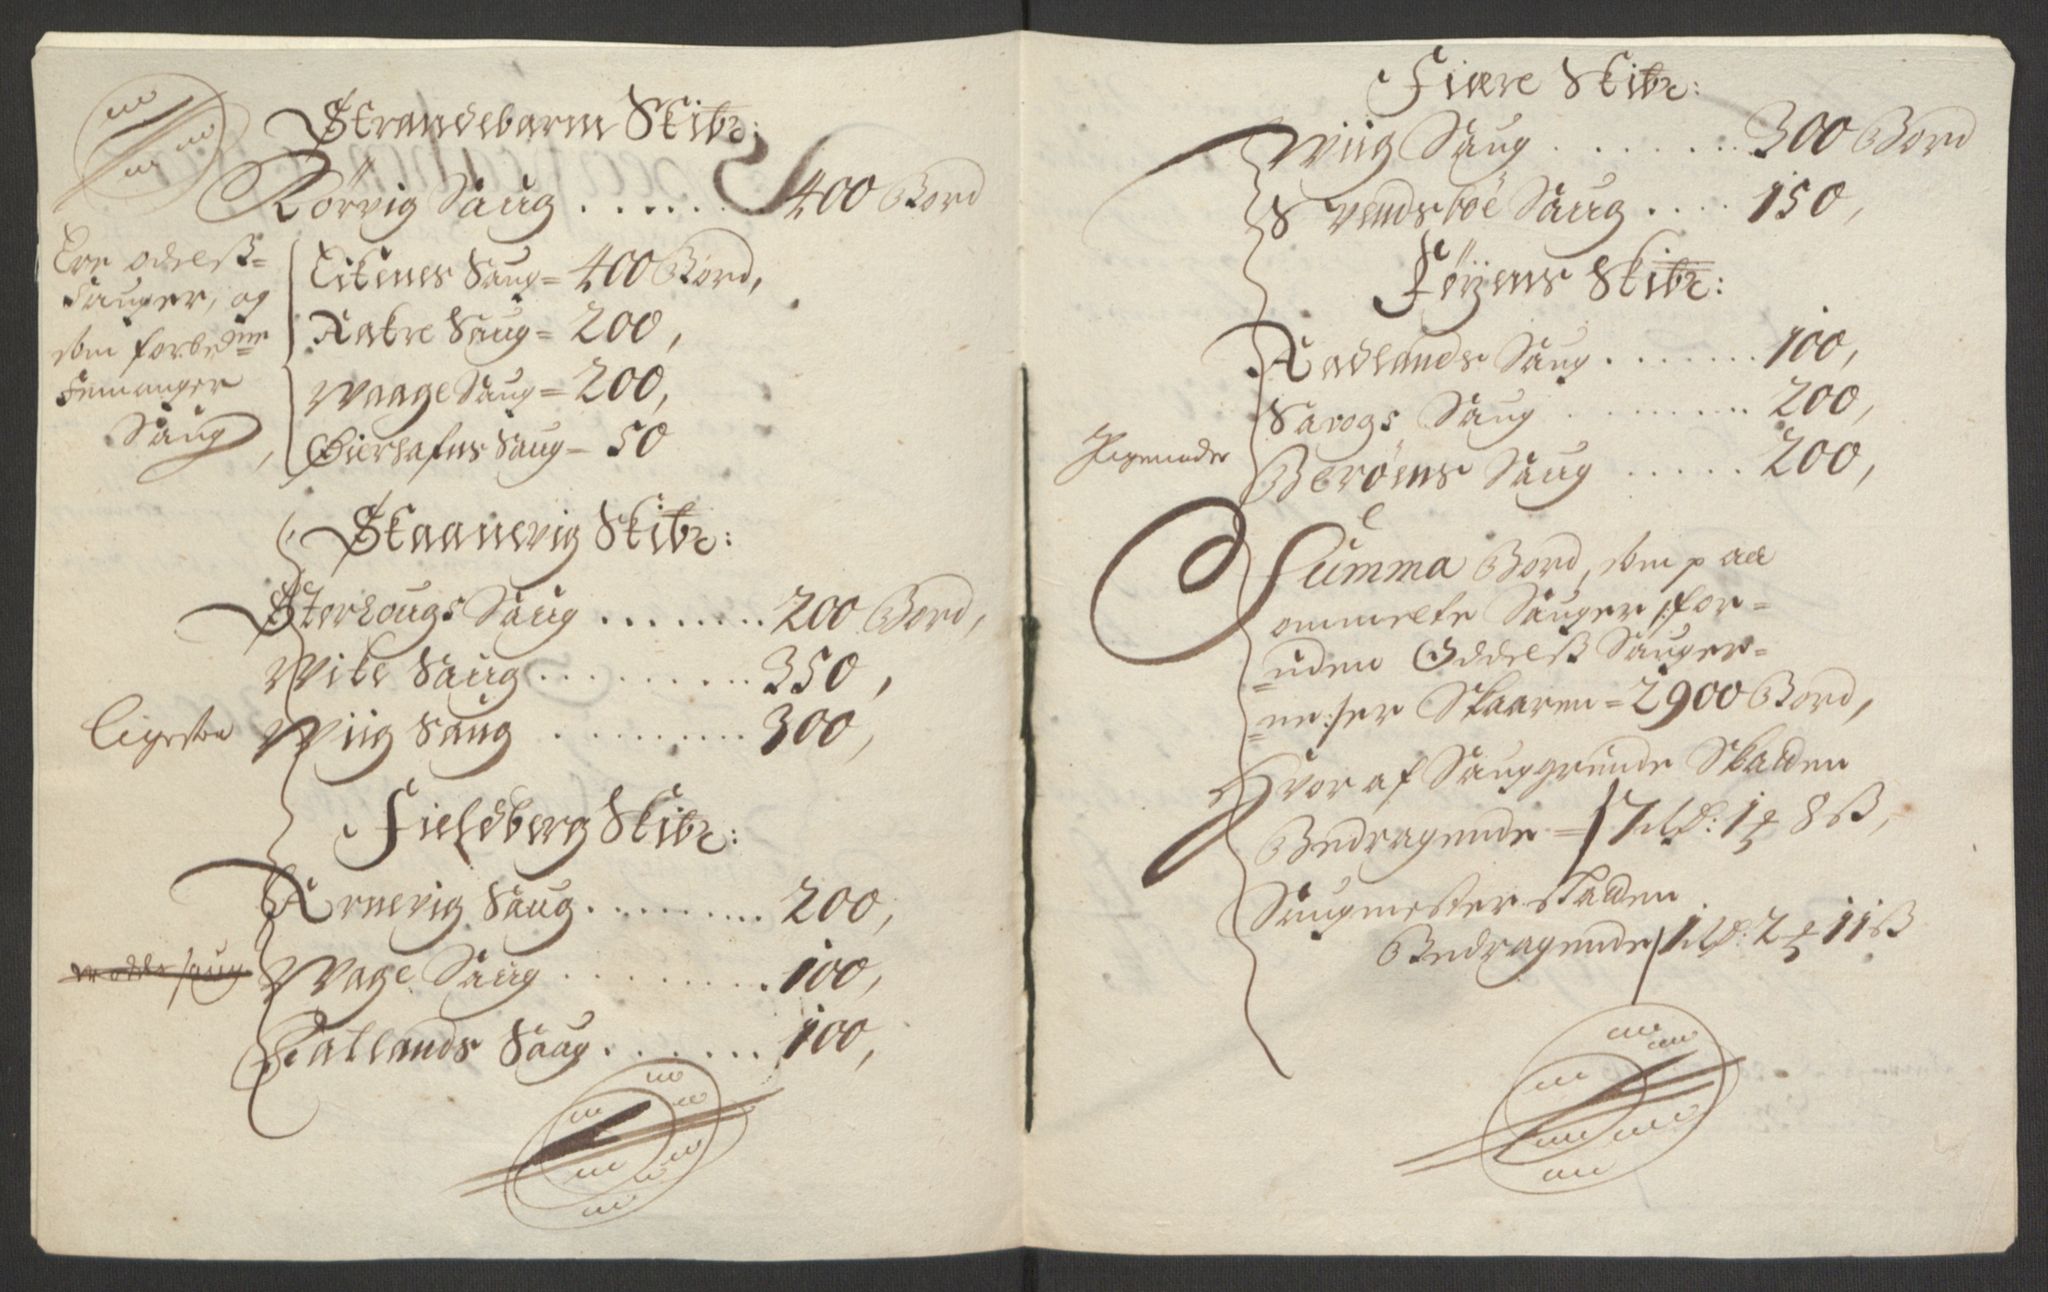 Strandebarm Skibr:
Rörvig Saug . . . . . . . 400 Bord
Ere odelss-
Sauger, og
som forbe
Femanger
Saug,
Eikenes Saug = 400 Bord,
Aakre Saug = 200,
Waage Saug = 200,
Gierhafns Saug = 50
Skaanevig Skibr:
Østerhougs Saug . . . . . . . . 200 Bord,
Wike Saug . . . . . . . . . . 350,
Ligesaa Wiig Saug . . . . . . . . . 300,
Fieldberg Skibr:
Arnevig Saug . . . . . . . . . 200,
er odels saug Wage Saug . . . . . . . . . 100,
Aatlands Saug . . . . . . . 100,
Fiære Skibr:
Wiig Saug . . . . . . . 300 Bord
Svendsböe Saug . . . . 150,
Föyens Skibr:
Aadlands Saug . . . . . . . 100,
Sarogs Saug . . . . . . . . 200,
Beröens Saug . . . . . 200,
Summa Bord, som paa
ommelte Sauger /:for-
uden Oddelss Sauger-
ne:/ er Skaaren = 2900 Bord,
Hvor af Sauggrunde Skatten
Bedragende = 7 rdr: 1 # 8 ss,
Saugmester skatten
Bedragende 1 rdr: 2 # 11 ss